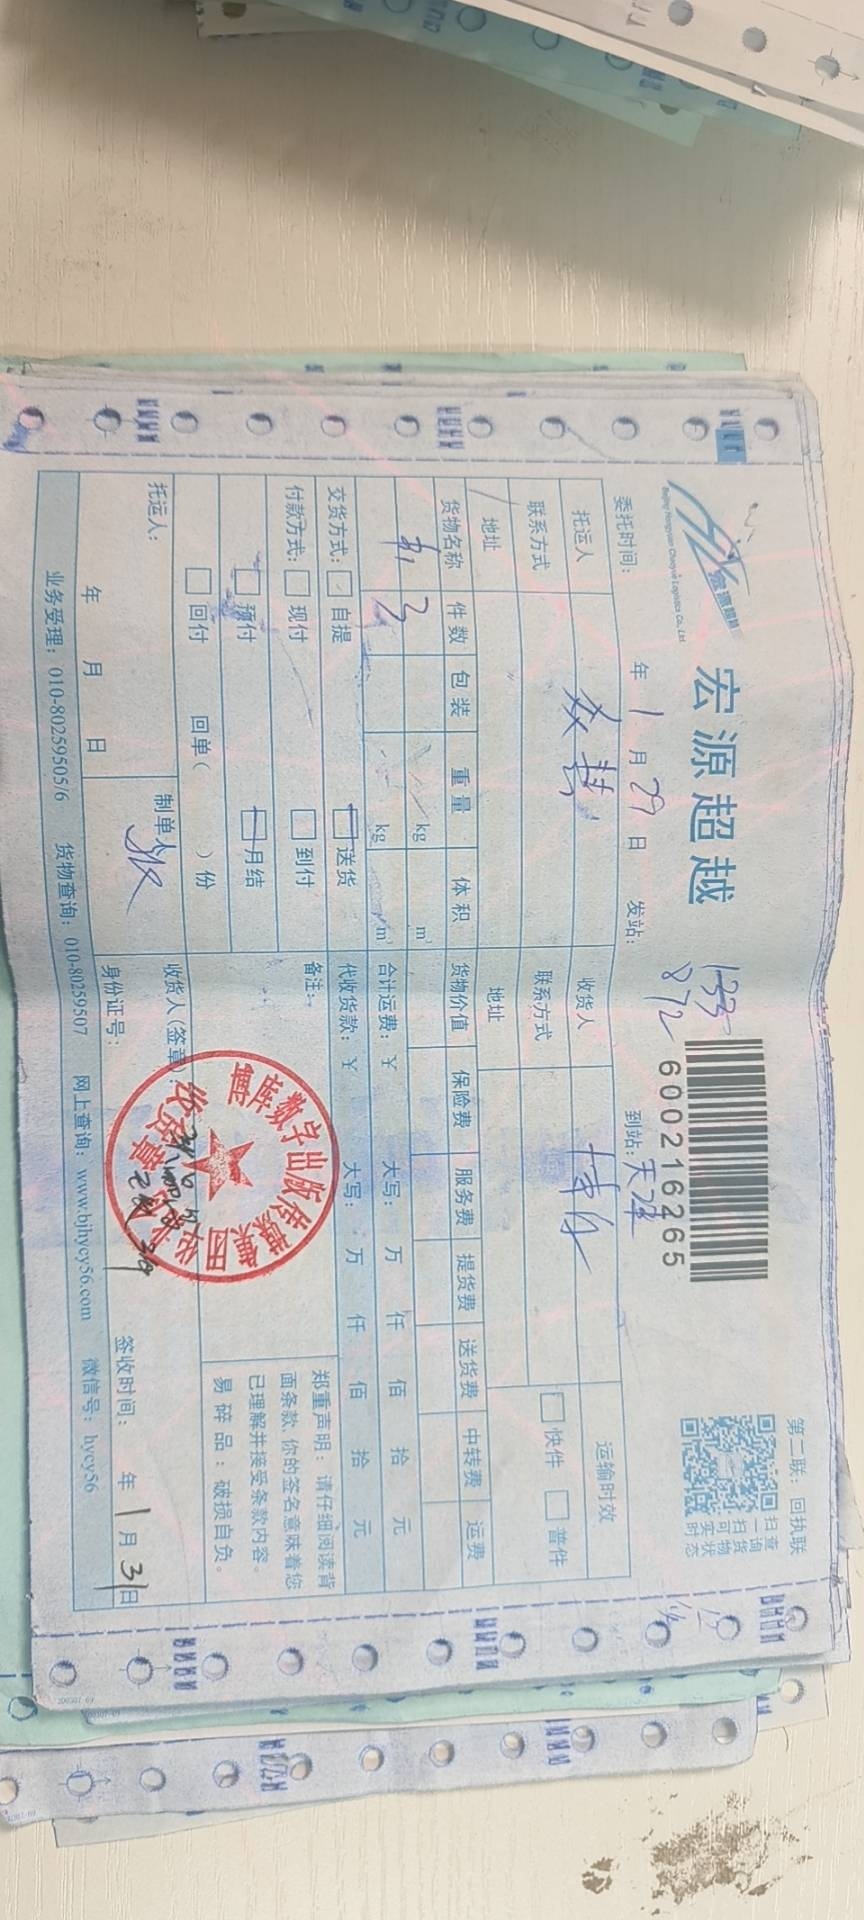 宏源超越
Beijing Hongyuan Chaoyue Logistics Co., Ltd.
宏源超越
133
872
600216265
第二联：回执联
扫查
一询
扫货
可物
实状
时态
委托时间： 年 1 月 29 日 发站： 到站：天津
托运人 收货人 博库 运输时效
联系方式 联系方式 快件 普件
地址 地址
货物名称 件数 包装 重量 体积 货物价值 保险费 服务费 提货费 送货费 中转费 运费
书 3 kg m³
kg m³
合计运费：¥ 大写： 万 仟 佰 拾 元
交货方式： 自提 送货 代收货款：¥ 大写： 万 仟 佰 拾 元
付款方式： 现付 到付 备注：
预付 月结
回付 回单（ ）份
郑重声明：请仔细阅读背
面条款,你的签名意味着您
已理解并接受条款内容。
易碎品：破损自负。
博库数字出版传媒集团
收货章
托运人： 制单人： 收货人（签章）：
年 月 日 身份证号： 签收时间： 年 1 月 31 日
业务受理：010-80259505/6 货物查询：010-80259507 网上查询：www.bjhycy56.com 微信号：hycy56